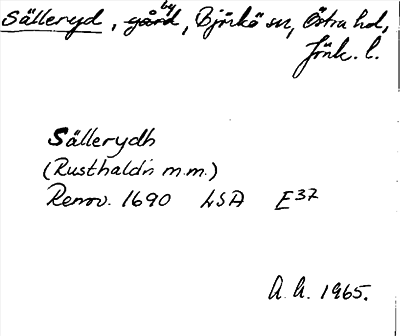 Sälleryd, by, Björkö sn, Östra hd,
Jönk. l.
Sällerydh
(Rusthald'n m.m.)
Renov. 1690 LSA E37
A. A. 1965.